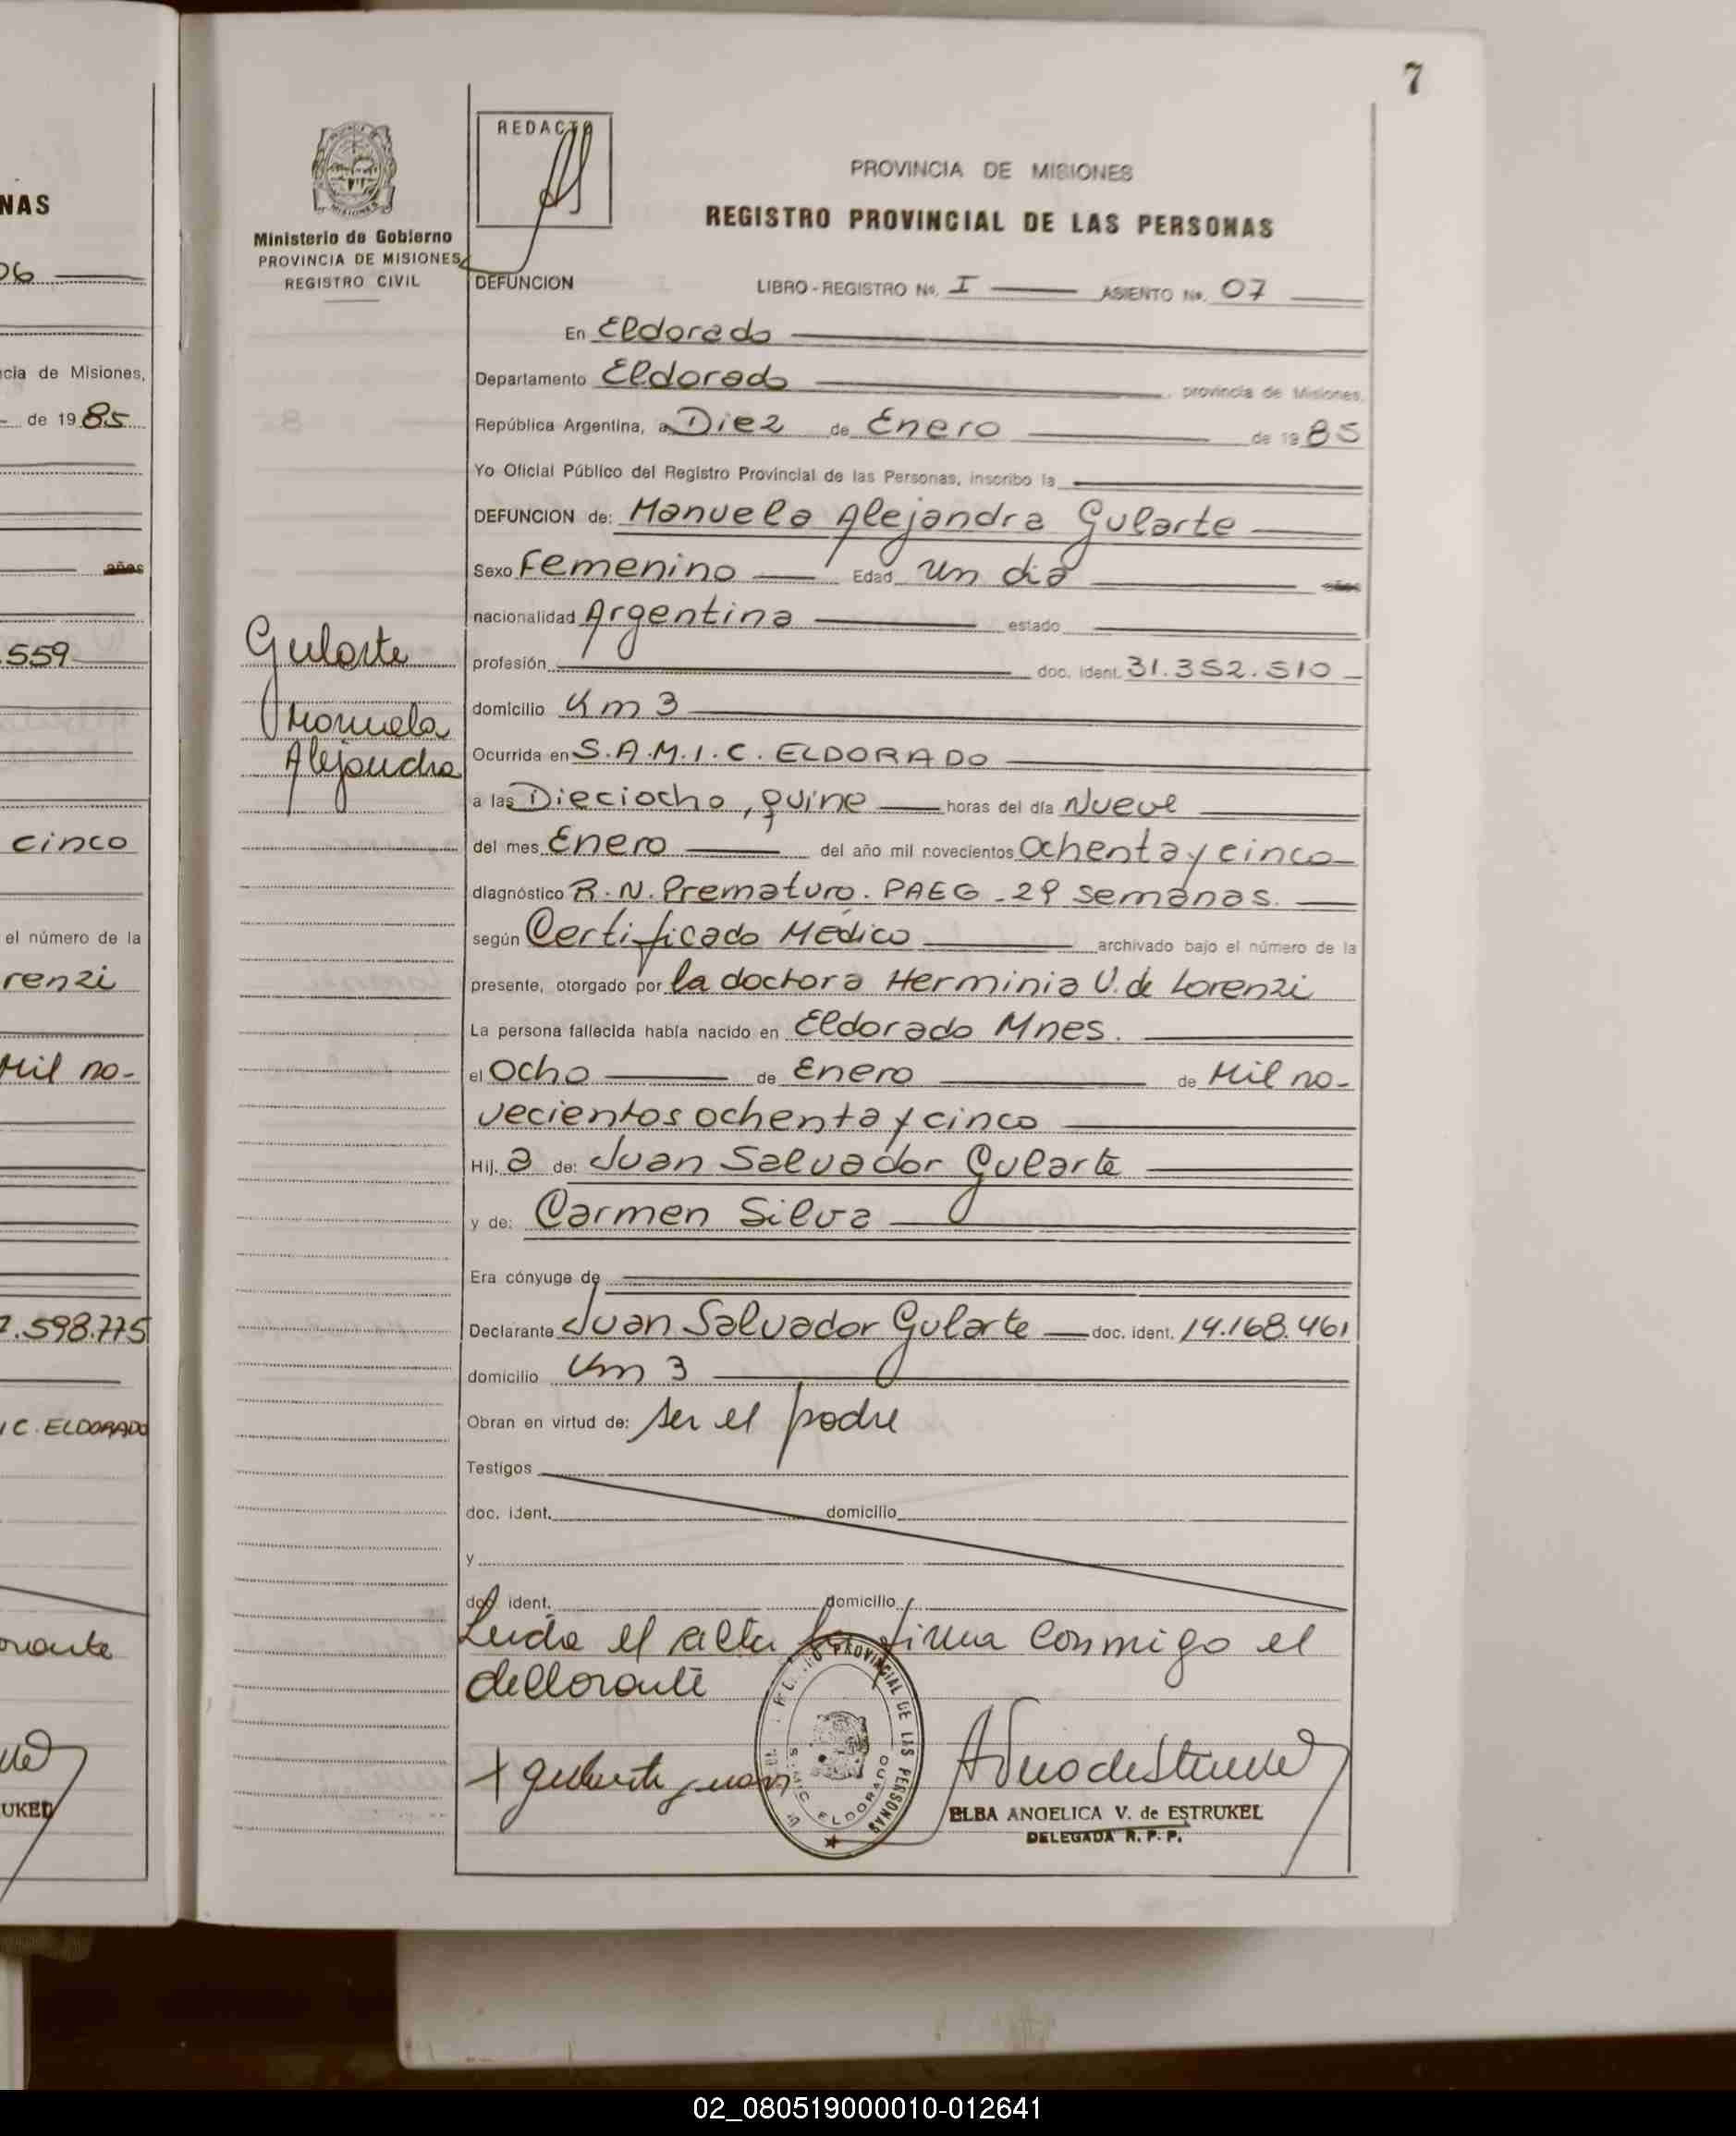 NAS
06
cia de Misiones,
de 1985
años
559
cinco
el número de la
renzi
Mil no-
7.598.775
I C. ELDORADO
UKEL
7
Ministerio de Gobierno
PROVINCIA DE MISIONES
REGISTRO CIVIL
REDACTO
PROVINCIA DE MISIONES
REGISTRO PROVINCIAL DE LAS PERSONAS
DEFUNCION LIBRO - REGISTRO No. I ASIENTO No. 07
En Eldorado
Departamento Eldorado, provincia de Misiones,
República Argentina, a Diez de Enero de 1985
Yo Oficial Público del Registro Provincial de las Personas, inscribo la
DEFUNCION de: Manuela Alejandra Gularte
Sexo Femenino Edad un dia años
nacionalidad Argentina estado
Gularte
Manuela
Alejandra
profesión doc. ident. 31.352.510
domicilio Km 3
Ocurrida en S.A.M.I.C. ELDORADO
a las Dieciocho, quine horas del día Nueve
del mes Enero del año mil novecientos ochenta y cinco
diagnóstico R.N. Prematuro. PAEG - 29 semanas.
según Certificado Médico archivado bajo el número de la
presente, otorgado por la doctora Herminia V. de Lorenzi
La persona fallecida había nacido en Eldorado Mnes.
el Ocho de Enero de Mil no-
vecientos ochenta y cinco
Hij. a de: Juan Salvador Gularte
y de: Carmen Silva
Era cónyuge de
Declarante Juan Salvador Gularte doc. ident. 14.168.461
domicilio Km 3
Obran en virtud de: ser el padre
Testigos
doc. ident. domicilio
y
doc. ident. domicilio
Leida el acta la firma conmigo el
declarante
+ gularte juan
PROVINCIAL DE LAS PERSONAS
ELDORADO
ELBA ANGELICA V. de ESTRUKEL
DELEGADA R. P. P.
02_080519000010-012641